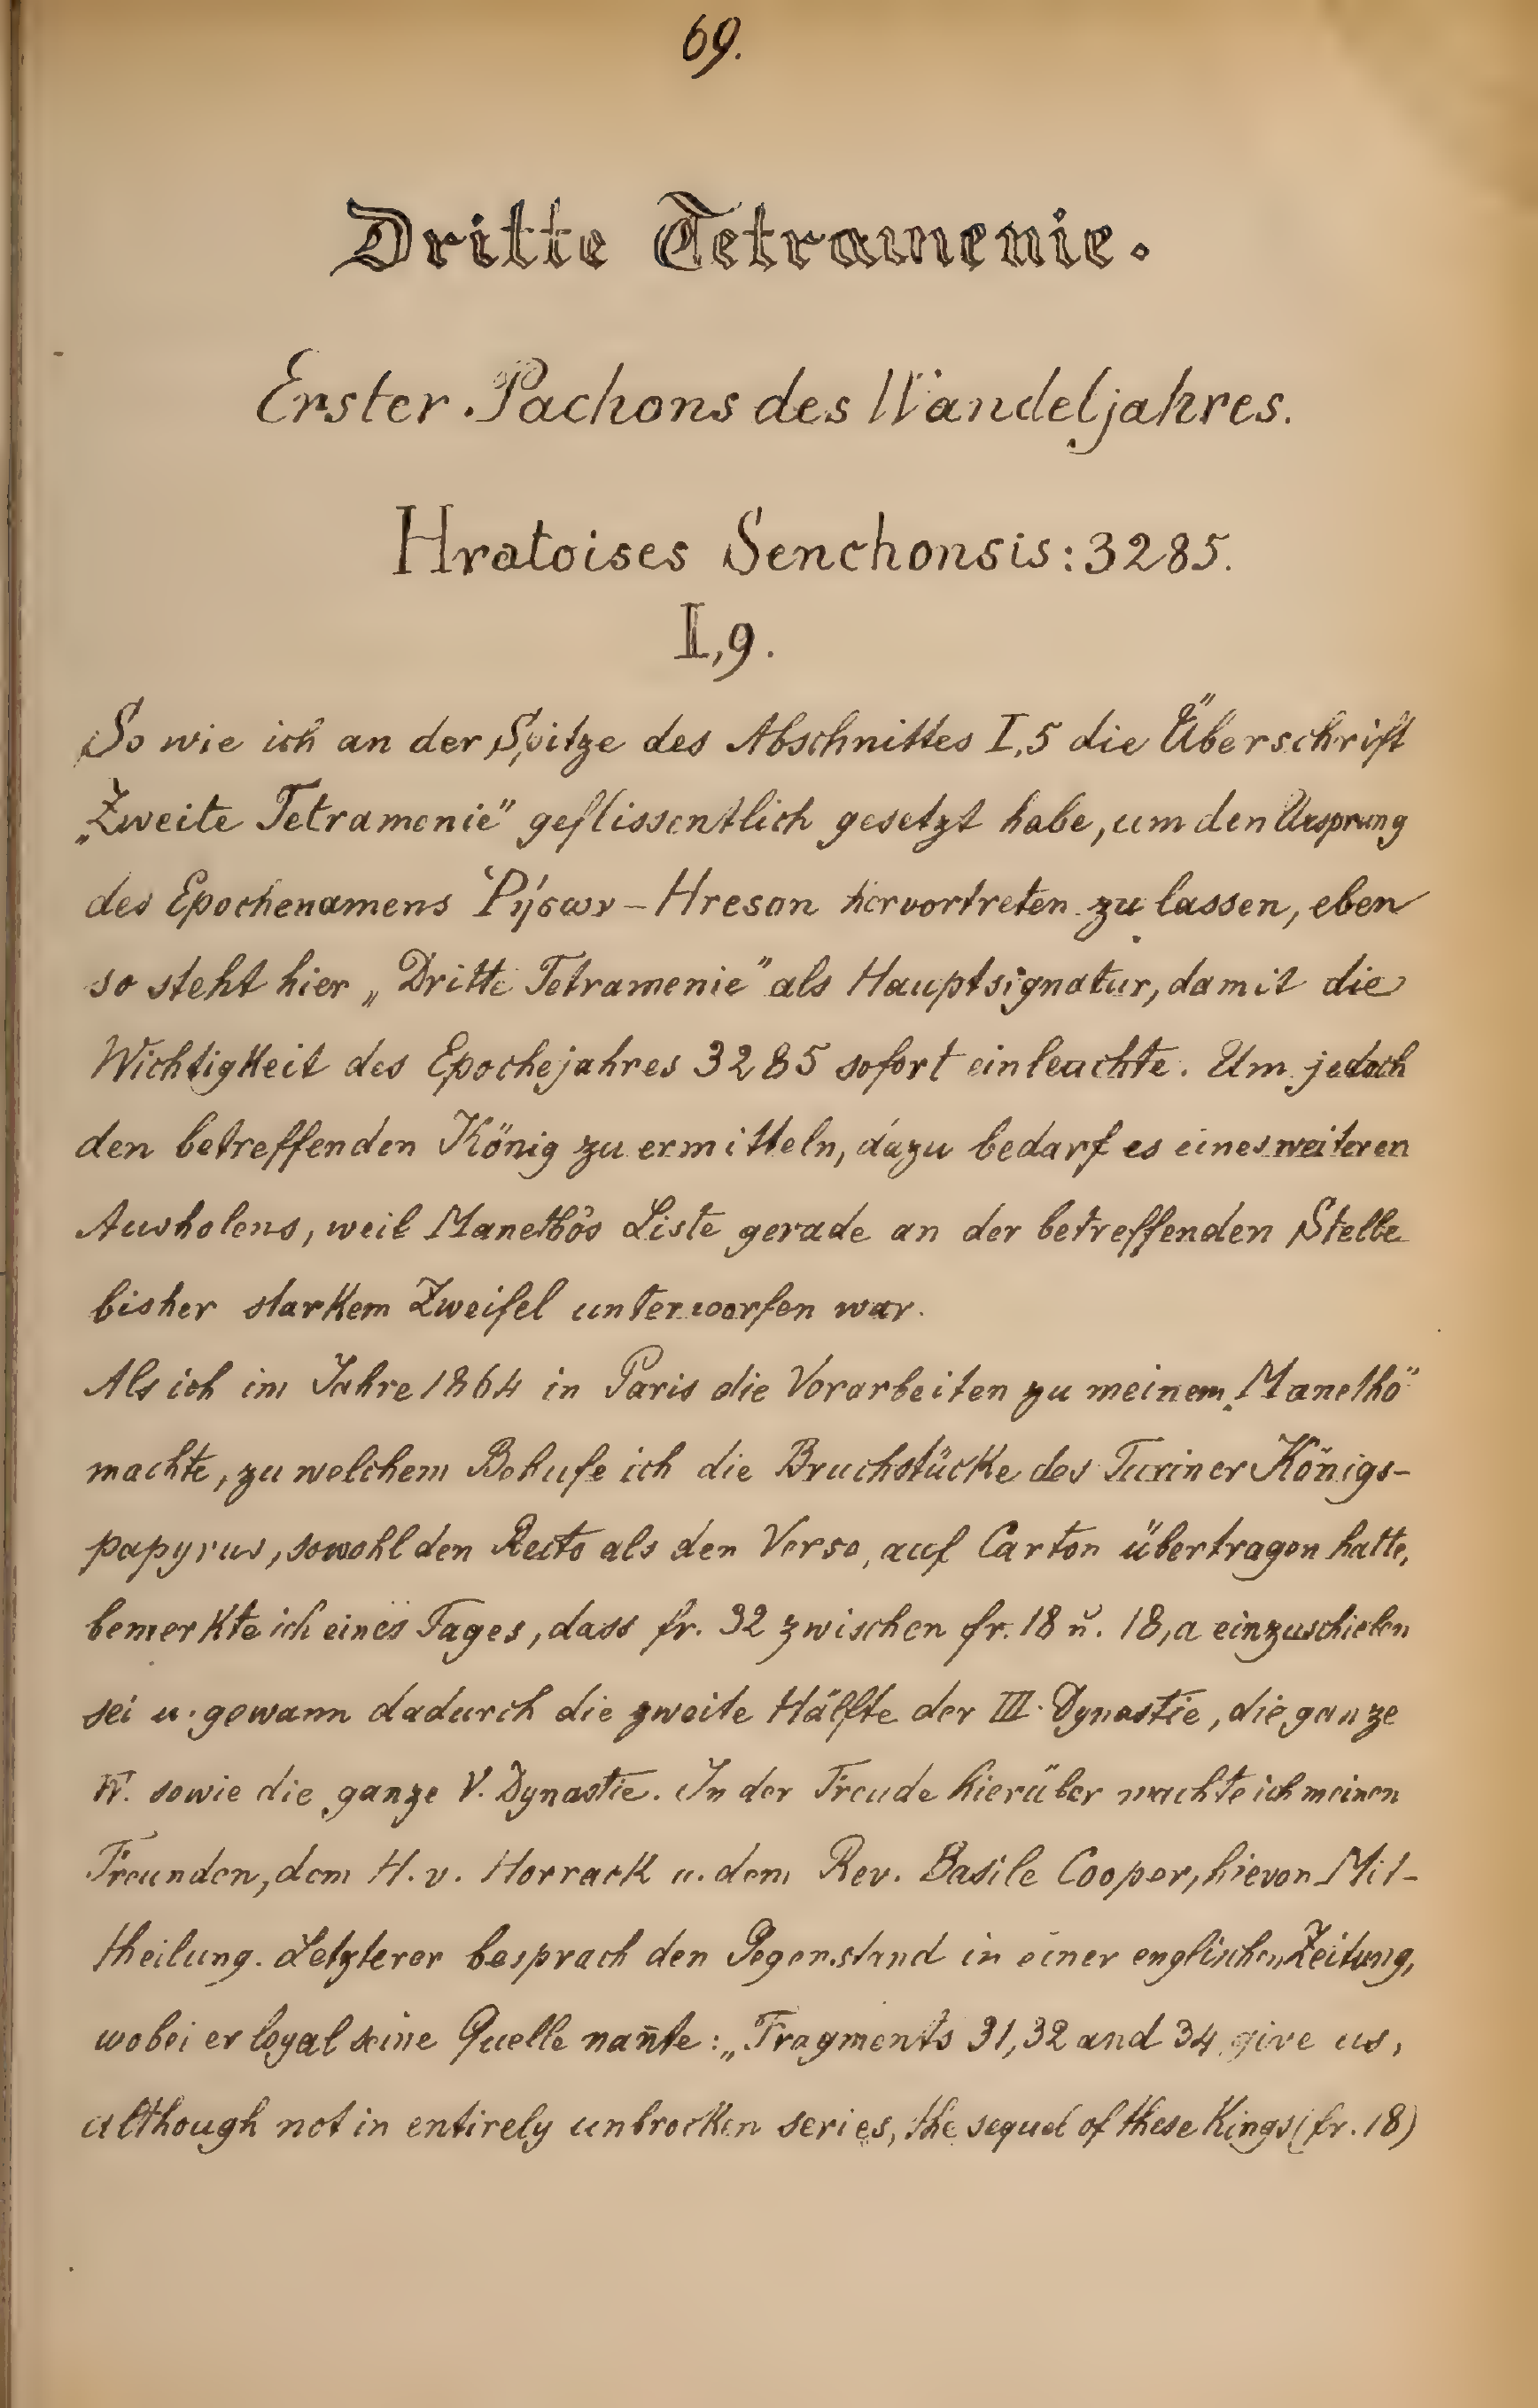 69.
Dritte Tetramenie.
Erster Pachons des Wandeljahres.
Hratoises Senchonsis: 3285.
I,9.
So wie ich an der Spitze des Abschnittes I,5 die Überschrift
„Zweite Tetramenie" geflissentlich gesetzt habe, um den Ursprung
des Epochenamens Ῥήσων – Hreson hervortreten zu lassen, eben
so steht hier „Dritte Tetramenie" als Hauptsignatur, damit die
Wichtigkeit des Epochejahres 3285 sofort einleuchte. Um jedoch
den betreffenden König zu ermitteln, dazu bedarf es eines weiteren
Ausholens, weil Manethôs Liste gerade an der betreffenden Stelle
bisher starkem Zweifel unterworfen war.
Als ich im Jahre 1864 in Paris die Vorarbeiten zu meinem „Manethô"
machte, zu welchem Behufe ich die Bruchstücke des Turiner Königs-
papyrus, sowohl den Recto als den Verso, auf Carton übertragen hatte,
bemerkte ich eines Tages, dass fr. 32 zwischen fr. 18 u. 18,a einzuschieben
sei u. gewann dadurch die zweite Hälfte der III. Dynastie, die ganze
IV. sowie die ganze V. Dynastie. In der Freude hierüber machte ich meinen
Freunden, dem H. v. Horrack u. dem Rev. Basile Cooper, hievon Mit-
theilung. Letzterer besprach den Gegenstand in einer englischen Zeitung,
wobei er loyal seine Quelle nañte: „Fragments 31, 32 and 34 give us,
although not in entirely unbrocken series, the sequel of these Kings (fr. 18)